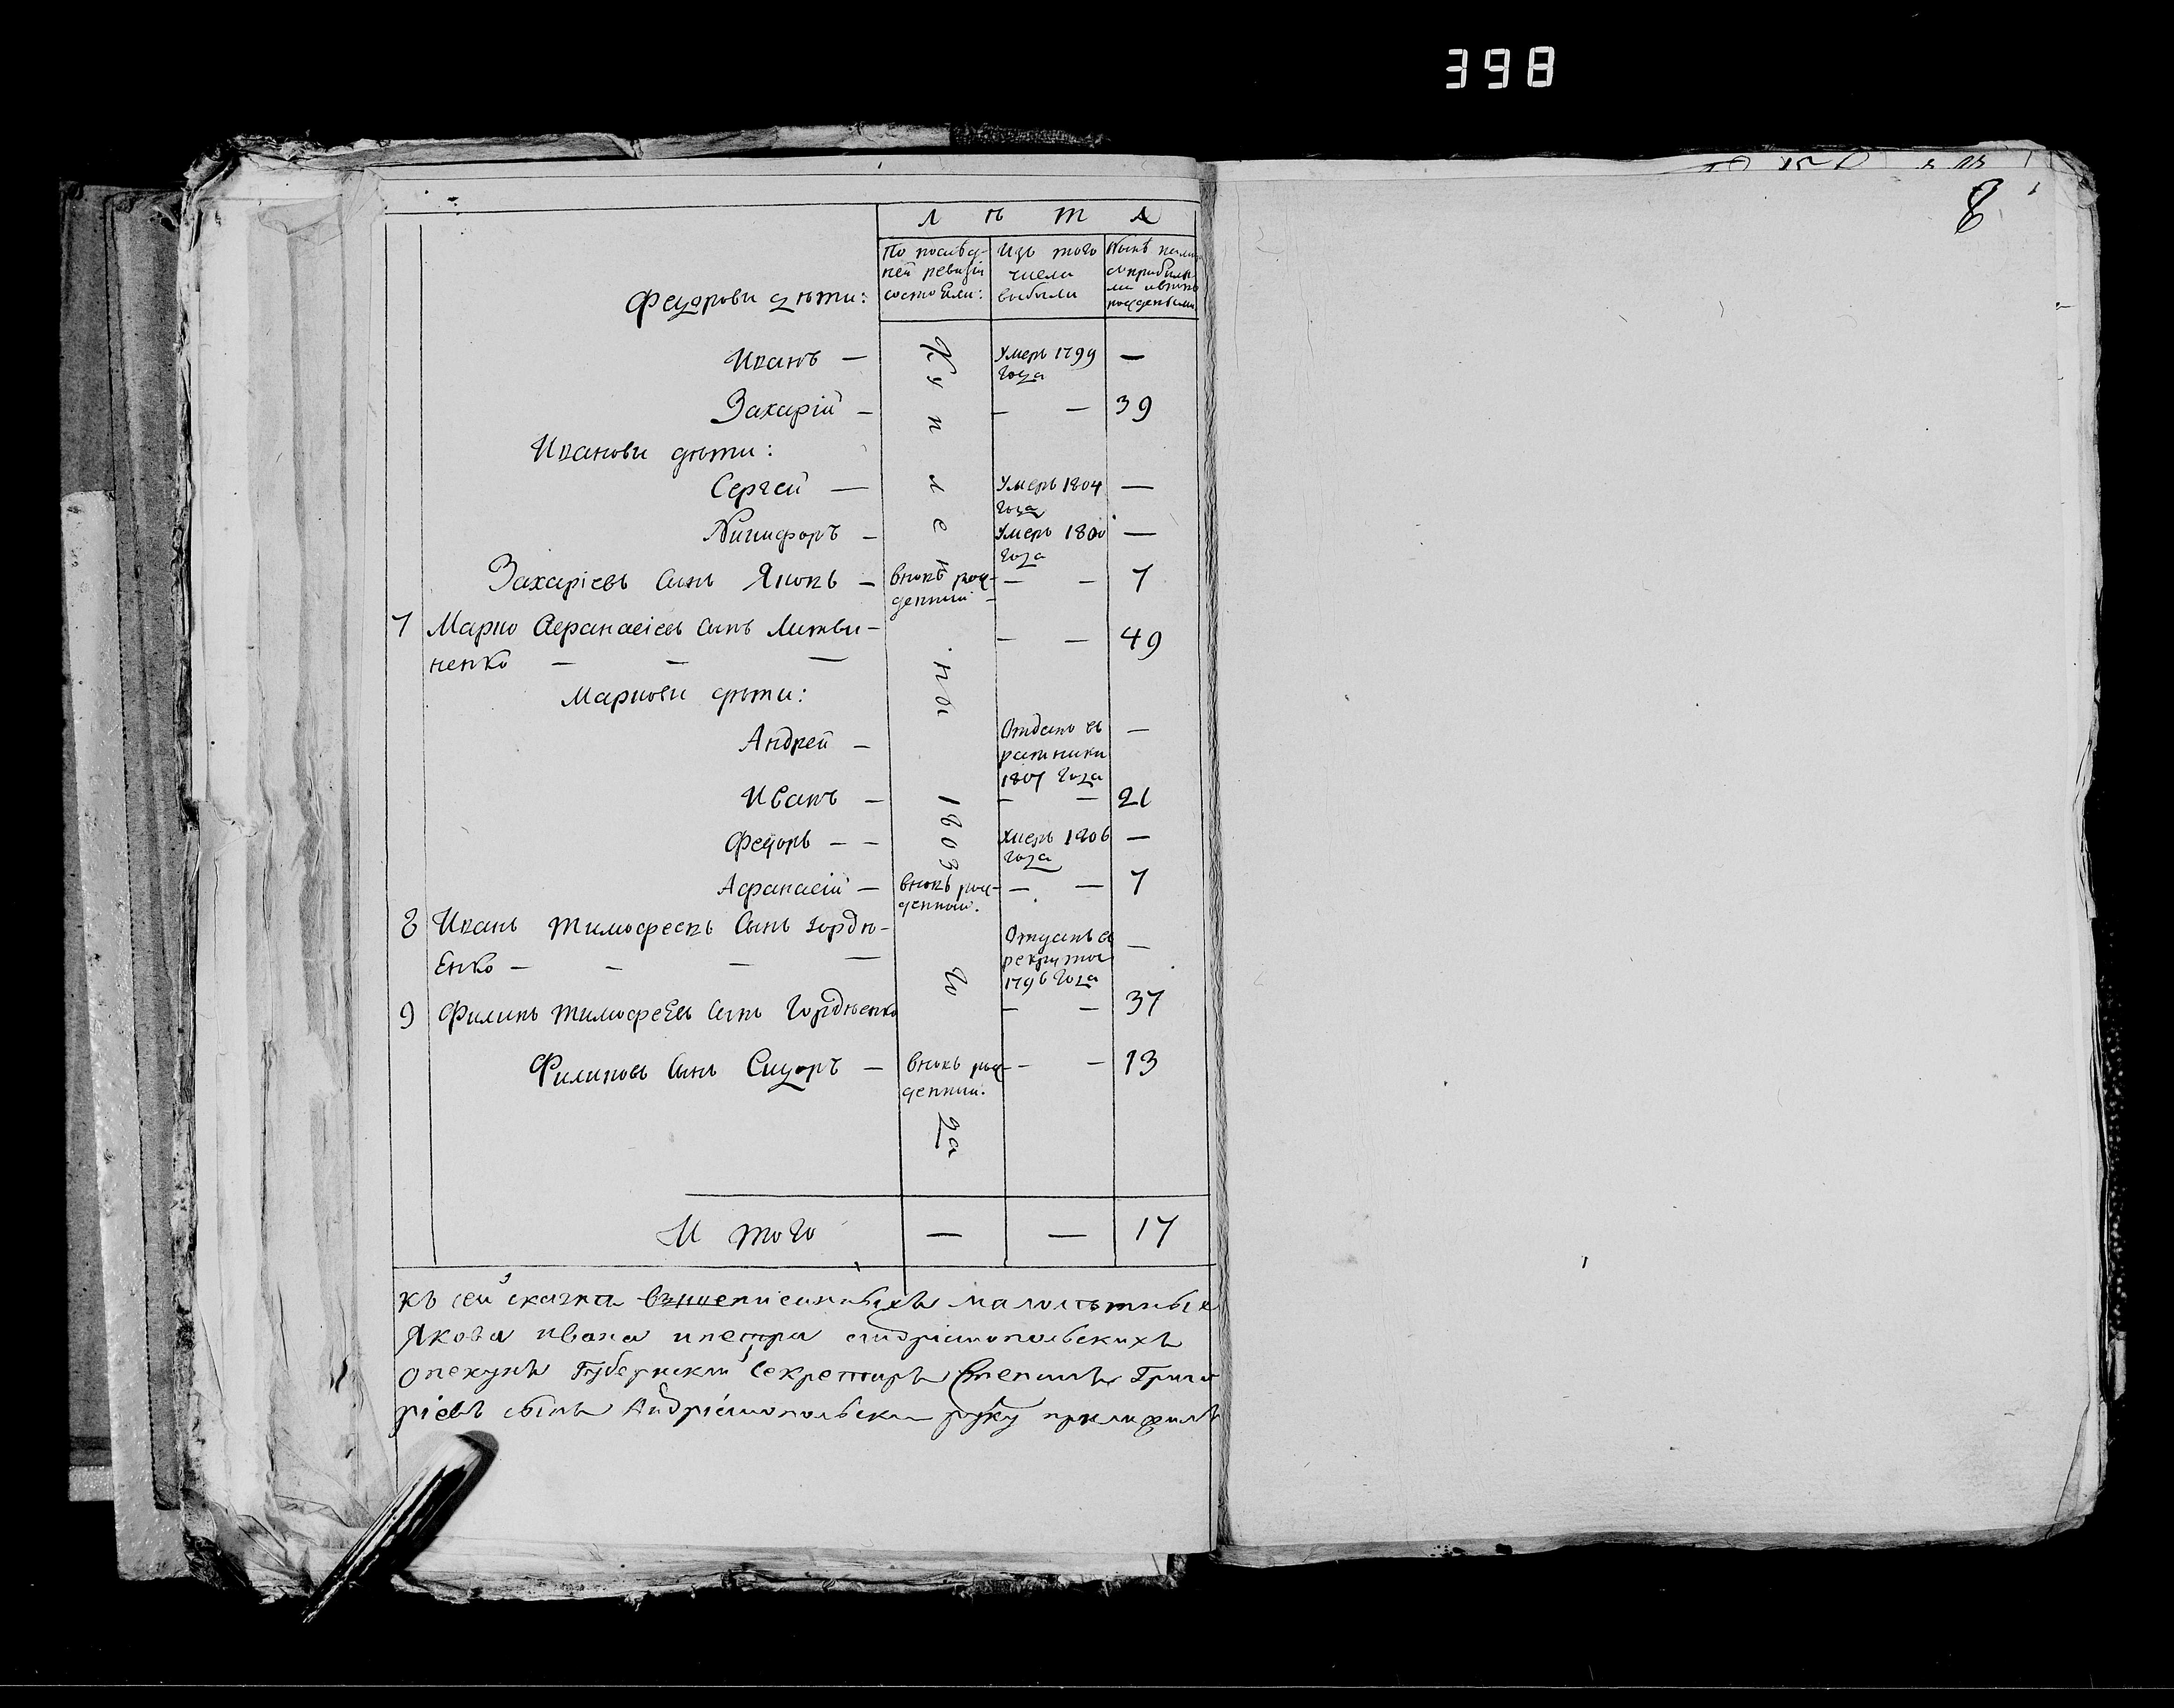 398
8
Л ѣ т а
По послѣд-
ней ревизіи
состояли:
Изъ того
числа
выбыли
Нынѣ
Федорови дѣти:
Иванъ — Умеръ 1799 —
года
Захарій — — — 39
Иванови дѣти:
Сергей — Умеръ 1804 —
года
Никифоръ — Умеръ 1800 —
года
Захаріевъ сынъ Яковъ — вновь рож- — — 7
денний
7 Марко Афанасіевъ сынъ Литви- — — 49
ненко — — —
Маркови дѣти:
Андрей — Отданъ въ —
ратники
1807 года
Иванъ — — — 21
Федоръ — — Умеръ 1806 —
года
Афанасій — вновь рож- — — 7
денний.
8 Иванъ Тимофеевъ сынъ Гордѣ- Отданъ в —
Енко — — — — рекруты
1796 года
9 Филипъ Тимофеевъ сынъ Гордѣенко — — 37
Филиповъ сынъ Сидоръ — вновь рож- — — 13
денний.
Купленны 1803 года
И того — — 17
Къ сей сказка вышеписанныхъ малолѣтныхъ
Якова Ивана и Петра Андріанопольскихъ
опекунъ Губернскій Секретаръ Степанъ Григо
ріевъ сынъ Андріанопольски руку приложилъ